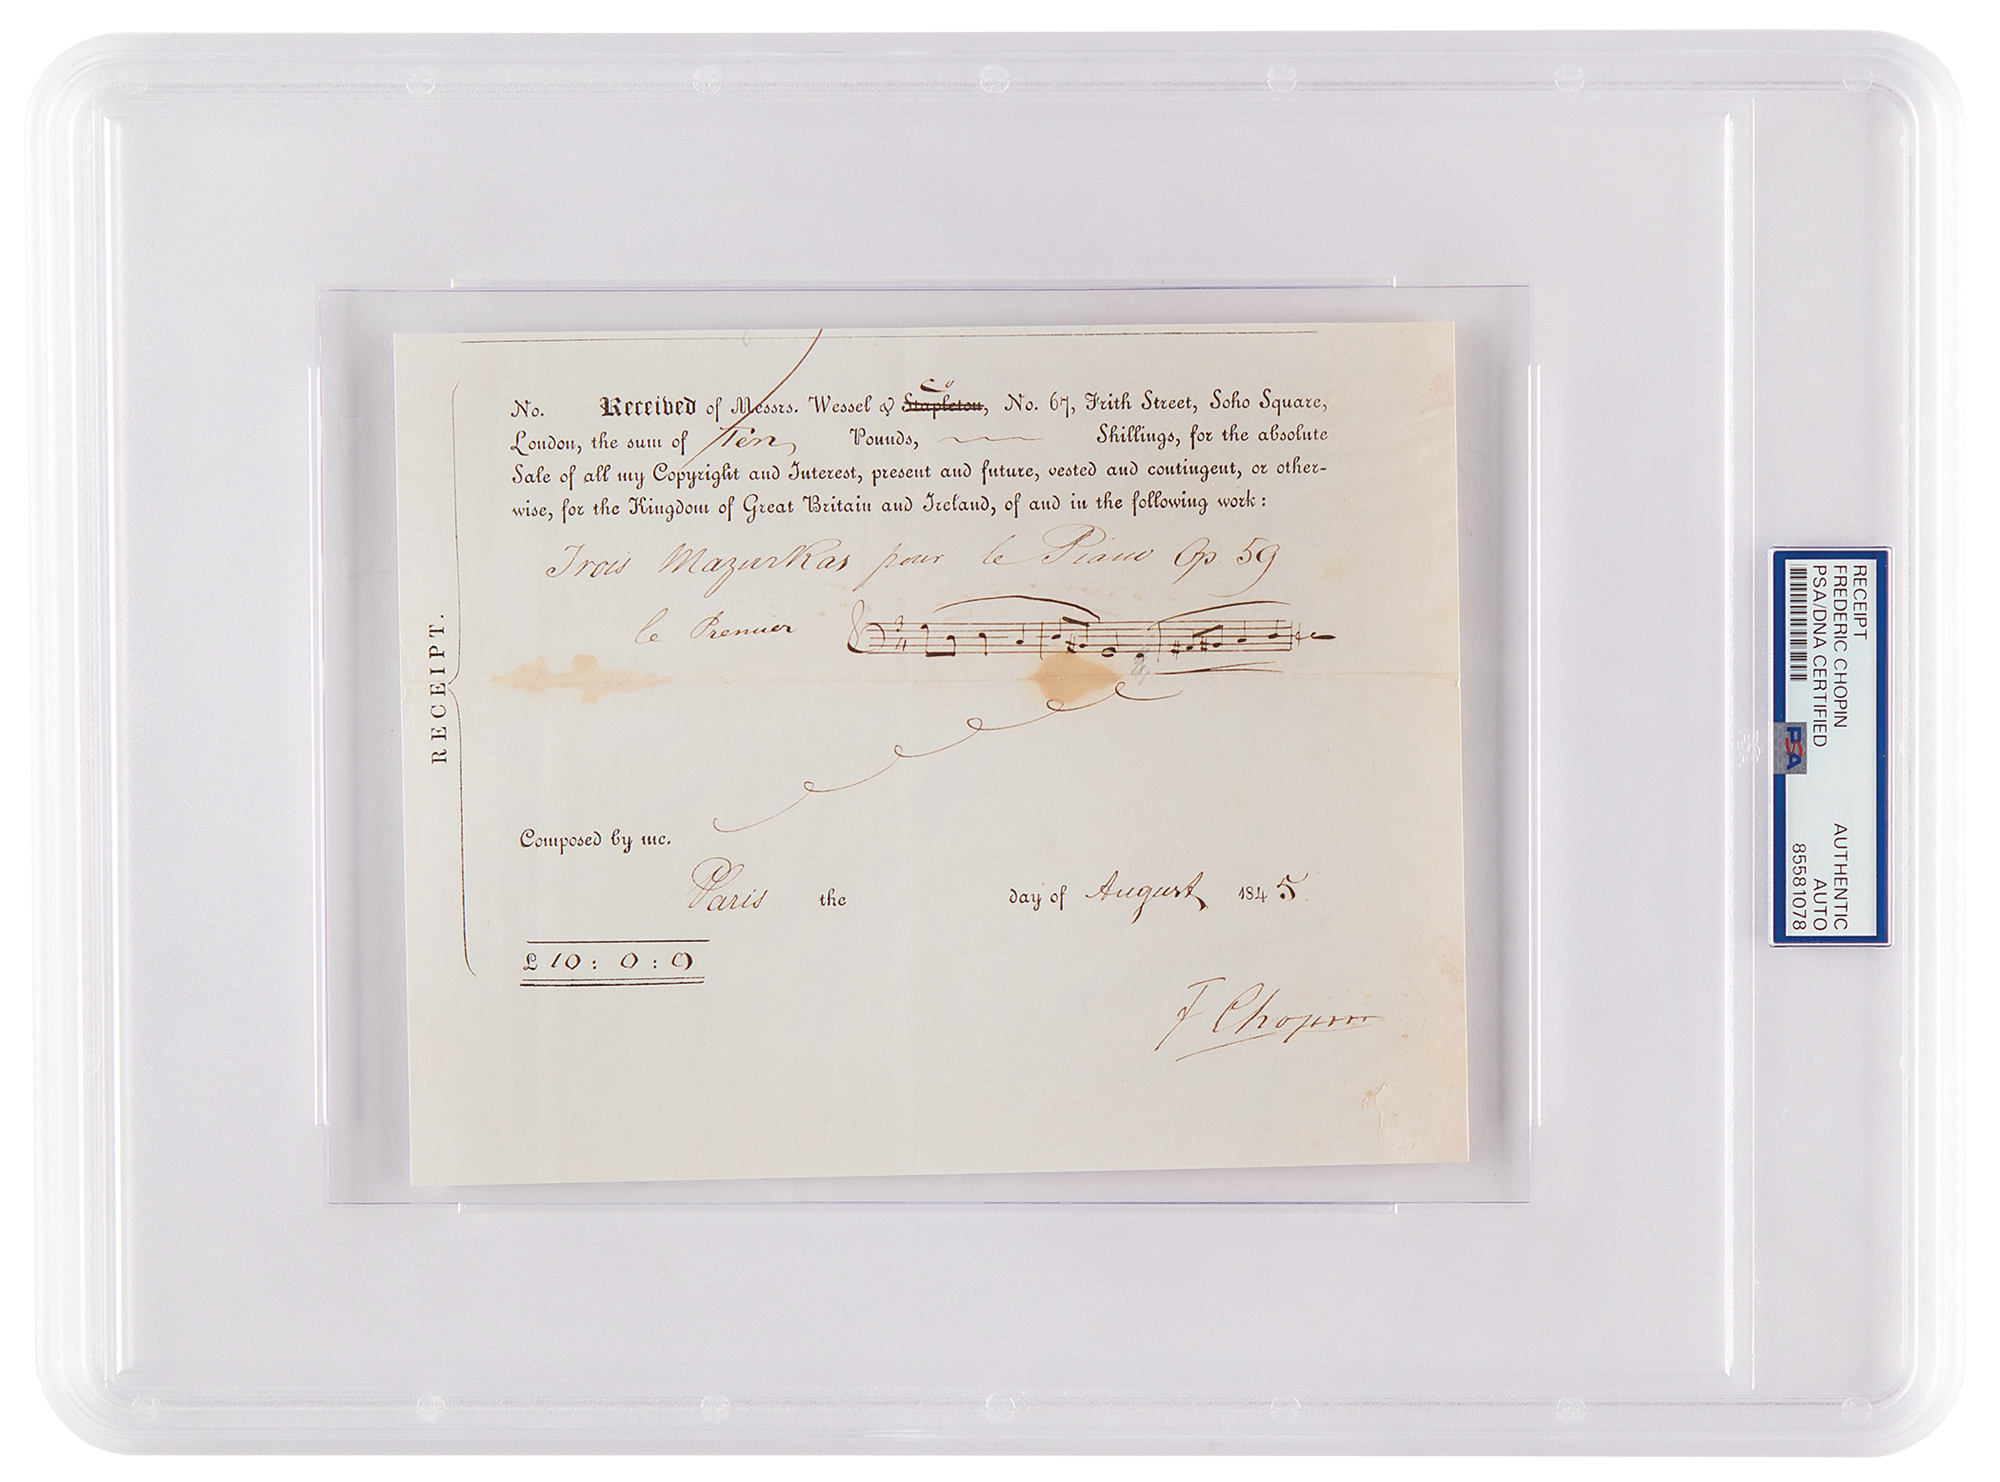 No. Received of Messrs. Wessel & Stapleton, Co No. 67, Frith Street, Soho Square,
London, the sum of Ten Pounds, Shillings, for the absolute
Sale of all my Copyright and Interest, present and future, vested and contingent, or other-
wise, for the Kingdom of Great Britain and Ireland, of and in the following work:
Trois Mazurkas pour le Piano Op. 59
le Premier 3/4 &c
RECEIPT.
Composed by me.
Paris the day of August 1845
£ 10 : 0 : 0
F Chopin
RECEIPT
FREDERIC CHOPIN
PSA/DNA CERTIFIED
PSA
AUTHENTIC
AUTO
85581078